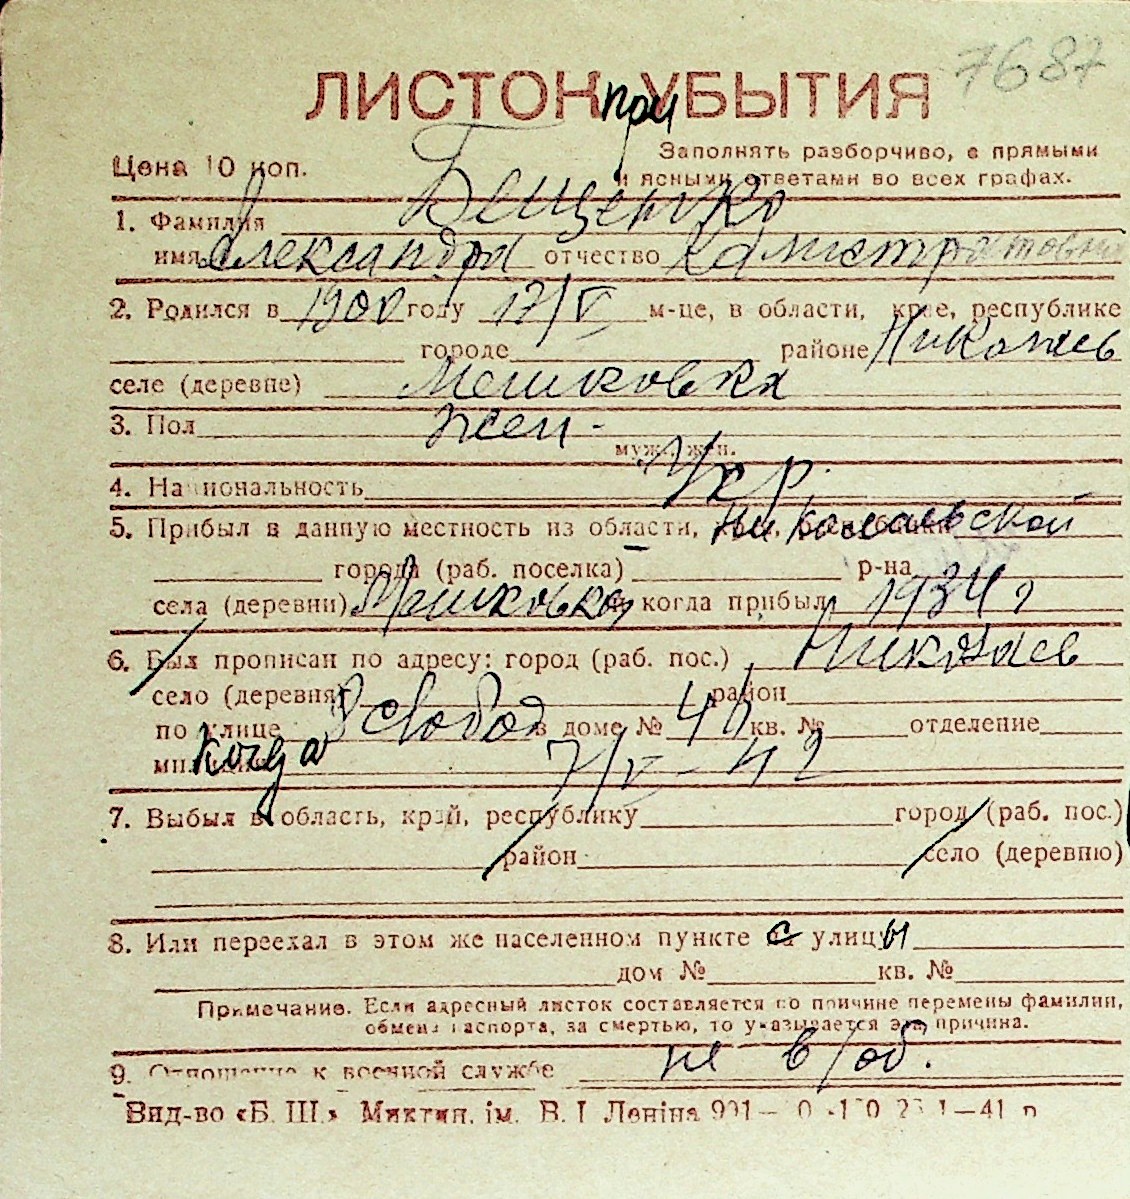 7687
ЛИСТОК при УБЫТИЯ
Цена 10 коп.
Заполнять разборчиво, с прямыми
и ясными ответами во всех графах.
1. Фамилия Бещенко
имя Александра отчество Калистратовна
2. Родился в 1900 году 17/V м-це, в области, крае, республике
городе районе Николаев
селе (деревне) Мешковка
3. Пол жен.
муж., жен.
4. Национальность Укр.
5. Прибыл в данную местность из области, Николаевской
города (раб. поселка) р-на
села (деревни) Мешковка и когда прибыл 1934 г
6. Был прописан по адресу: город (раб. пос.) Николаев
село (деревня) район
по улице 3 Свобод в доме № 46 кв. № отделение
милиции когда 7/V-42
7. Выбыл в область, край, республику город (раб. пос.)
район село (деревню)
8. Или переехал в этом же населенном пункте с улицы
дом № кв. №
Примечание. Если адресный листок составляется по причине перемены фамилии,
обмена паспорта, за смертью, то указывается эта причина.
9. Отношение к военной службе не в/об.
Вид-во «Б. Ш.» Миктип. ім. В. І Леніна